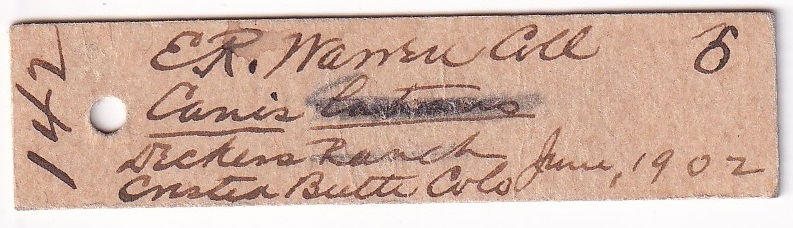 142
E.R. Warren Coll 5
Canis latrans
Deckers Ranch June, 1902
Crested Butte Colo